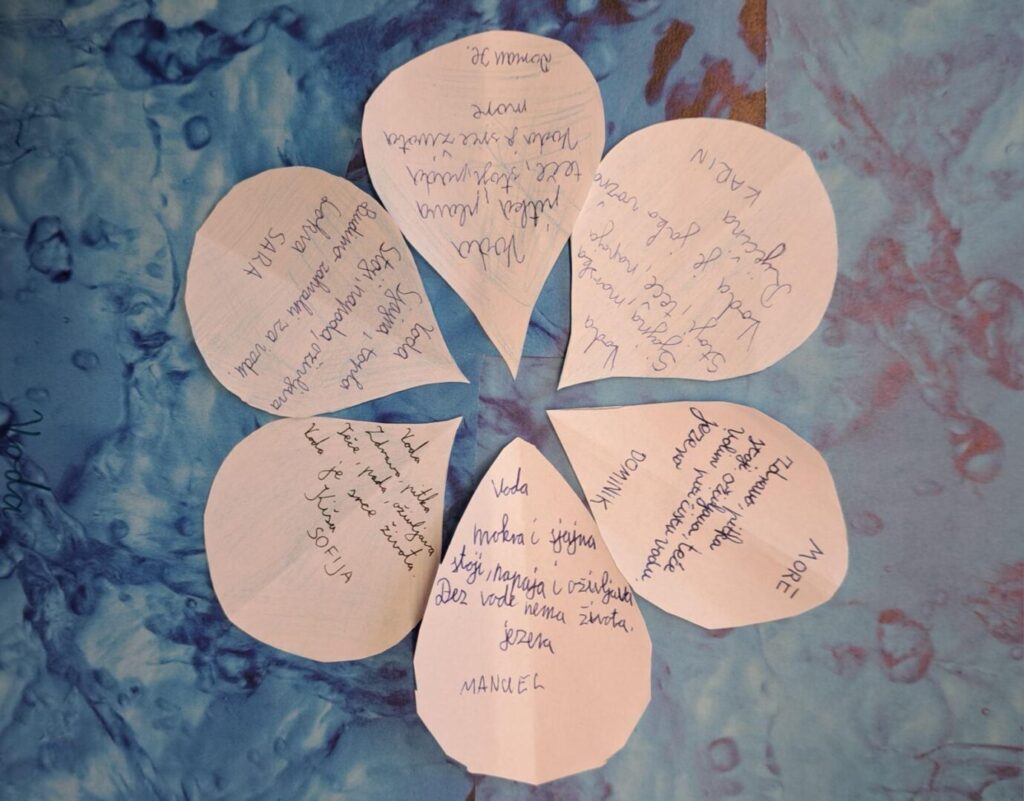 Voda
pitka, plava
teče, stoji, pada
Voda je srce života
more
Voda
Sjajna, morska
Stoji, teče, napaja
Voda je jako važna
Rječina
KARIN
MORE
Zdrava, pitka
stoji, oživljava, teče
Volim piti čistu vodu.
Jezero
DOMINIK
Voda
mokra i sjajna
stoji, napaja i oživljava
Bez vode nema života.
jezera
MANUEL
Voda
Zdrava, pitka
Teče, pada, oživljava
Voda je srce života.
Kiša
SOFIJA
Voda
Sjajna, topla
Stoji, napaja, oživljava
Budimo zahvalni za vodu
Lokva
SARA
Voda